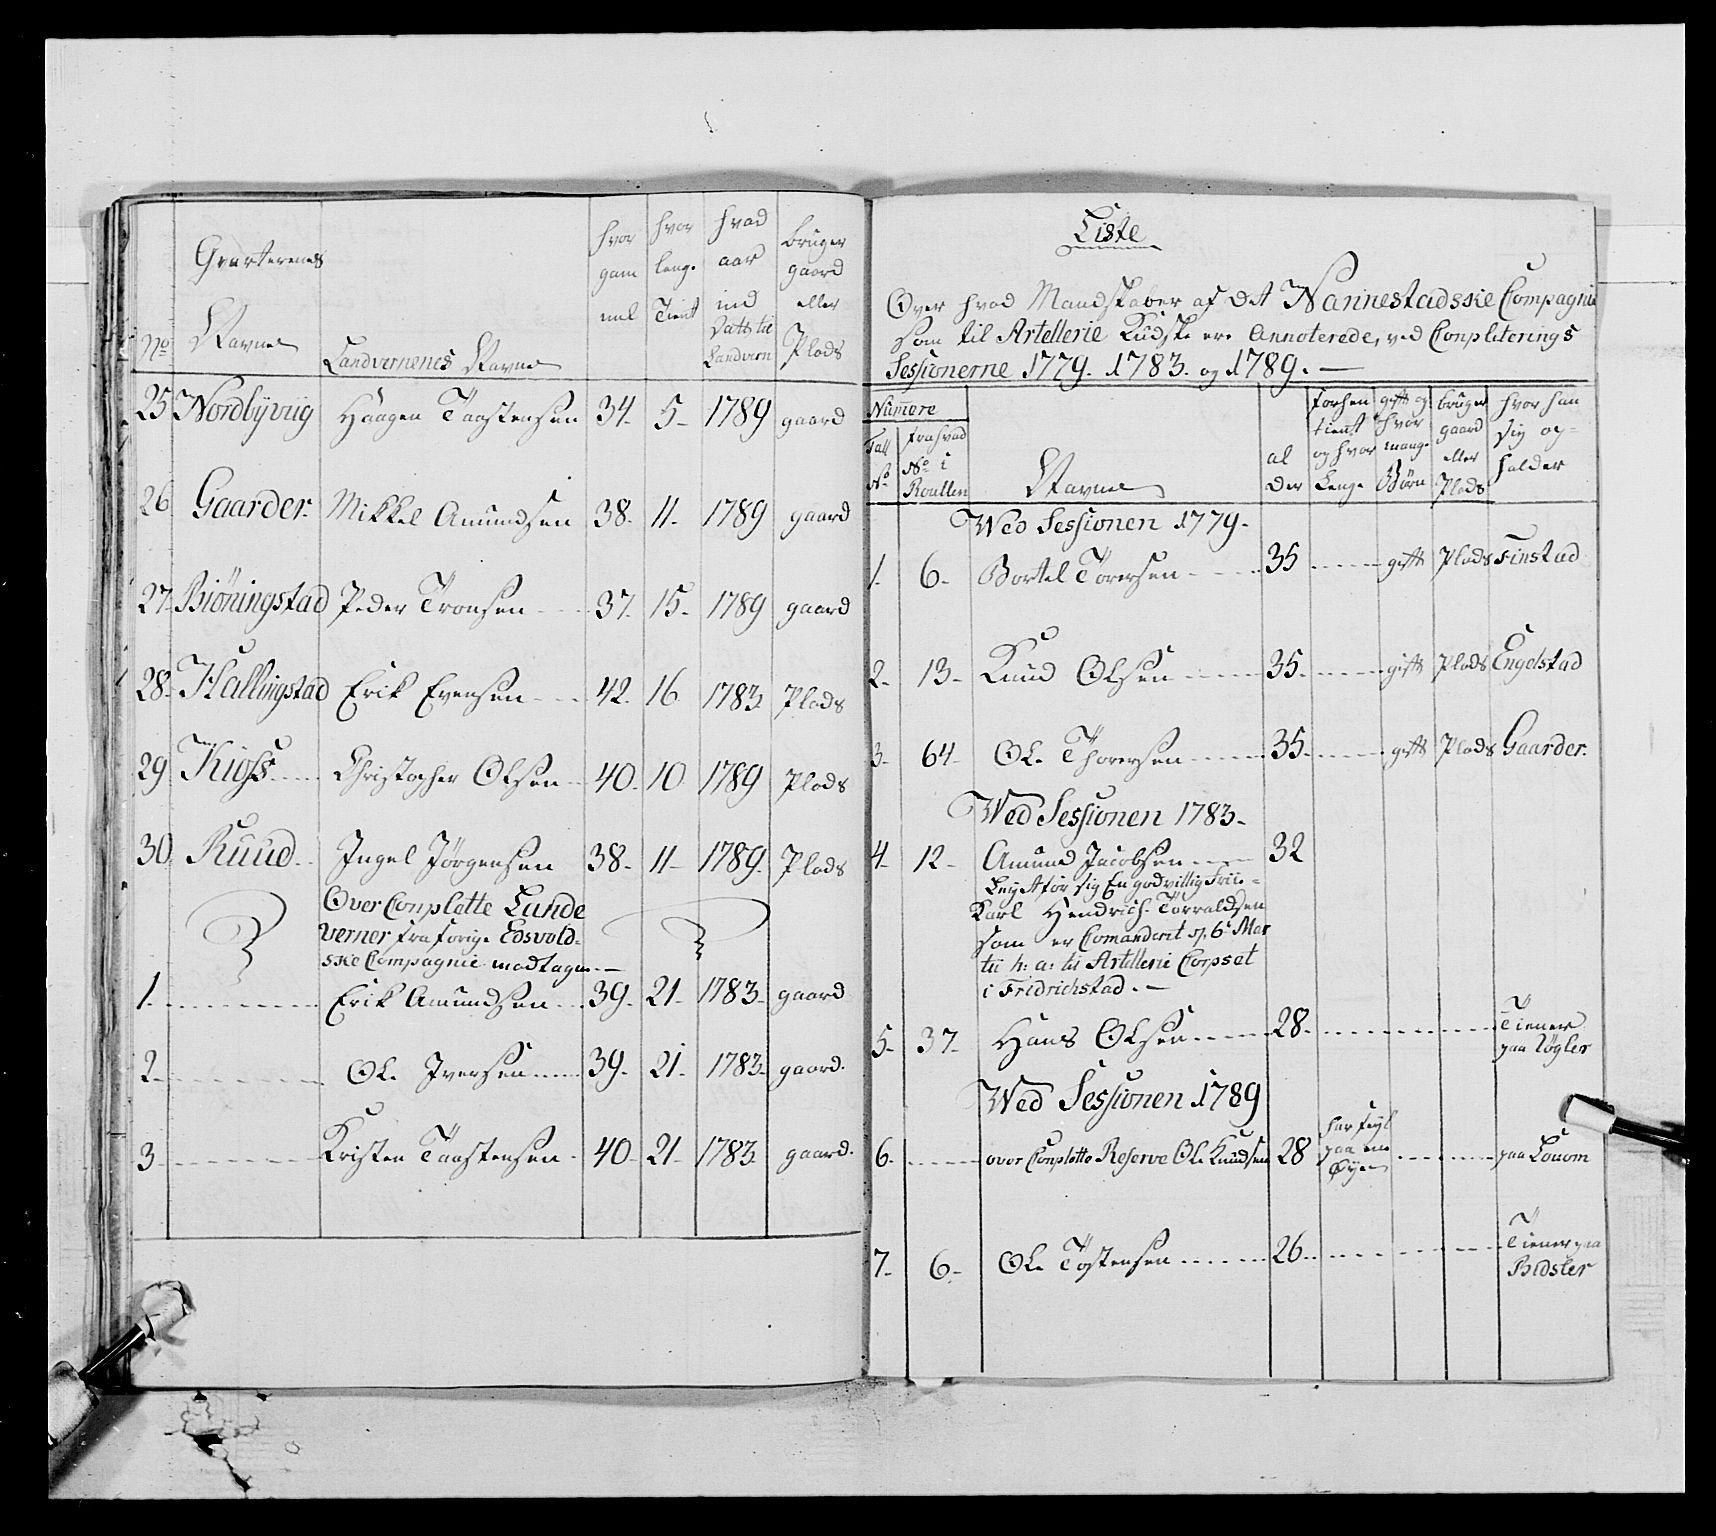 Gvarterenes
No
Navne
Landvernenes Navne
hvor gam mel
hvor lenge Tient
hvad aar ind Satts til Landvern
bruger gaard eller Plads
25 Nordbÿviig Haagen Taastensen 34. 5- 1789 gaard
26 Gaarder. Mikkel Amundsen 38. 11- 1789 gaard
27. Biöningstad Peder Tronsen 37. 15- 1789 gaard
28. Hallingstad Erik Evensen 42. 16 1783 Plads
29 Kios Christopher Olsen 40. 10 1789 Plads
30. Ruud Ingel Jörgensen 38- 11- 1789. Plads
Over Conplette Lande
verner fra forige Edsvold-
ske Compagnie modtagen.-
1. Erik Amundsen 39. 21- 1783- gaard
2. Ole Iversen 39. 21- 1783- gaard.
3 Kristen Taastensen 40- 21- 1783 gaard.
Liste
Over hvad Mandskaber af det Nannestadsske Compagnie
som til Artellerie Kudske ere Annoterede, ved Conpleterings
Sessionerne 1779. 1783. og 1789. —
Numere
Tall No
fra hvad No i Roullen
Navne
al der
forhen tient og hvor lenge
gift og hvor mange Börn
bruger gaard eller Plads
hvor han sig op-holder
Wed Sessionen 1779-
1. 6- Bortel Torersen 35 gift Plads Finstad
2- 13- Knud Olsen 35. gift Plads Engelstad
3. 64- Ole Thoresen 35. gift Plads Gaarder.
Wed Sessionen 1783-
4- 12- Amund Jacobsen 32
Leyet for sig En godvillig Frie-
Karl Hendrich Torraldsen
som er Comanderet d. 6t Mar
tii h: a: til Artilleri Corpset
i Fridrichstad. —
5- 37- Hans Olsen 28- Tiener
paa Løgler
Wed Sessionen 1789
6. over Conplette Reserve Ole Knudsen 28 har feyl paa en Øye paa Louom
7. 6- Ole Tostensen 26. Tiener paa
Bidsler